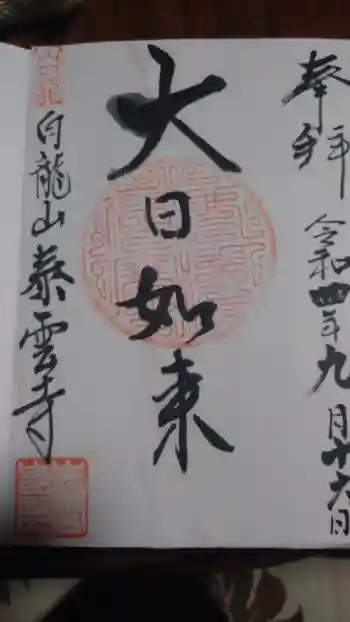 奉拝
令和四年九月十六日
大日如来
白龍山泰雲寺